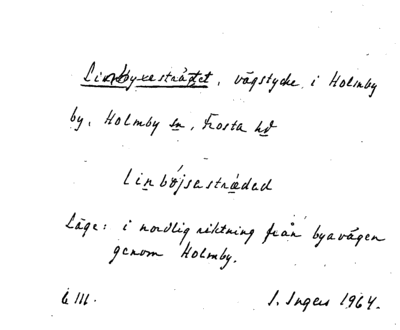 Linbyxesträdet, vägstycke i Holmby
by, Holmby sn, Frosta hd
linbójsasträded
Läge: i nordlig riktning från byavägen
genom Holmby.
I. Ingers 1964.